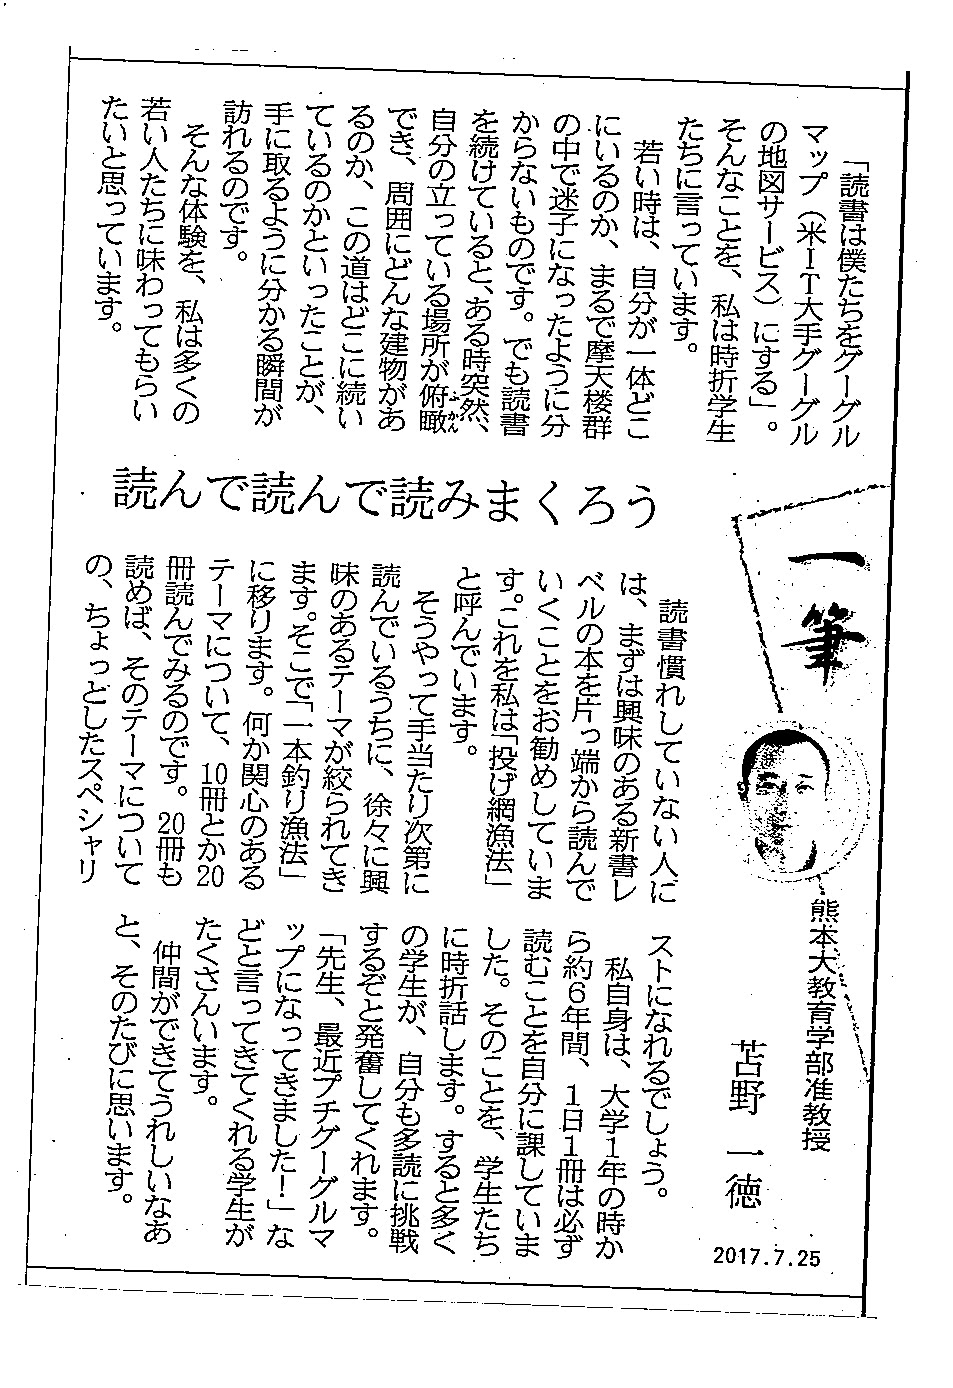 一筆
熊本大教育学部准教授
苫野 一徳
読んで読んで読みまくろう
「読書は僕たちをグーグル
マップ(米IT大手グーグル
の地図サービス)にする」。
そんなことを、私は時折学生
たちに言っています。
若い時は、自分が一体どこ
にいるのか、まるで摩天楼群
の中で迷子になったように分
からないものです。でも読書
を続けていると、ある時突然、
自分の立っている場所が俯瞰
ふかん
でき、周囲にどんな建物があ
るのか、この道はどこに続い
ているのかといったことが、
手に取るように分かる瞬間が
訪れるのです。
そんな体験を、私は多くの
若い人たちに味わってもらい
たいと思っています。
読書慣れしていない人に
は、まずは興味のある新書レ
ベルの本を片っ端から読んで
いくことをお勧めしていま
す。これを私は「投げ網漁法」
と呼んでいます。
そうやって手当たり次第に
読んでいるうちに、徐々に興
味のあるテーマが絞られてき
ます。そこで「一本釣り漁法」
に移ります。何か関心のある
テーマについて、10冊とか20
冊読んでみるのです。20冊も
読めば、そのテーマについて
の、ちょっとしたスペシャリ
ストになれるでしょう。
私自身は、大学1年の時か
ら約6年間、1日1冊は必ず
読むことを自分に課していま
した。そのことを、学生たち
に時折話します。すると多く
の学生が、自分も多読に挑戦
するぞと発奮してくれます。
「先生、最近プチグーグルマ
ップになってきました!」な
どと言ってきてくれる学生が
たくさんいます。
仲間ができてうれしいなあ
と、そのたびに思います。
2017.7.25